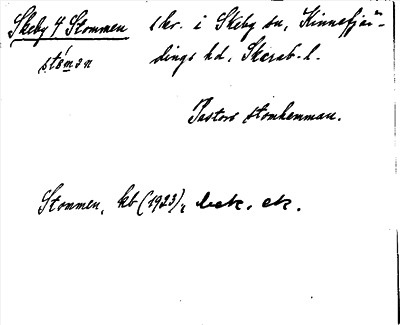 Skeby 4 Stommen 1 kr. i Skeby sn, Kinnefjär-
stómən dings hd, Skarab. l.
Pastors stomhemman.
Stommen, kb (1923), bek. ek.